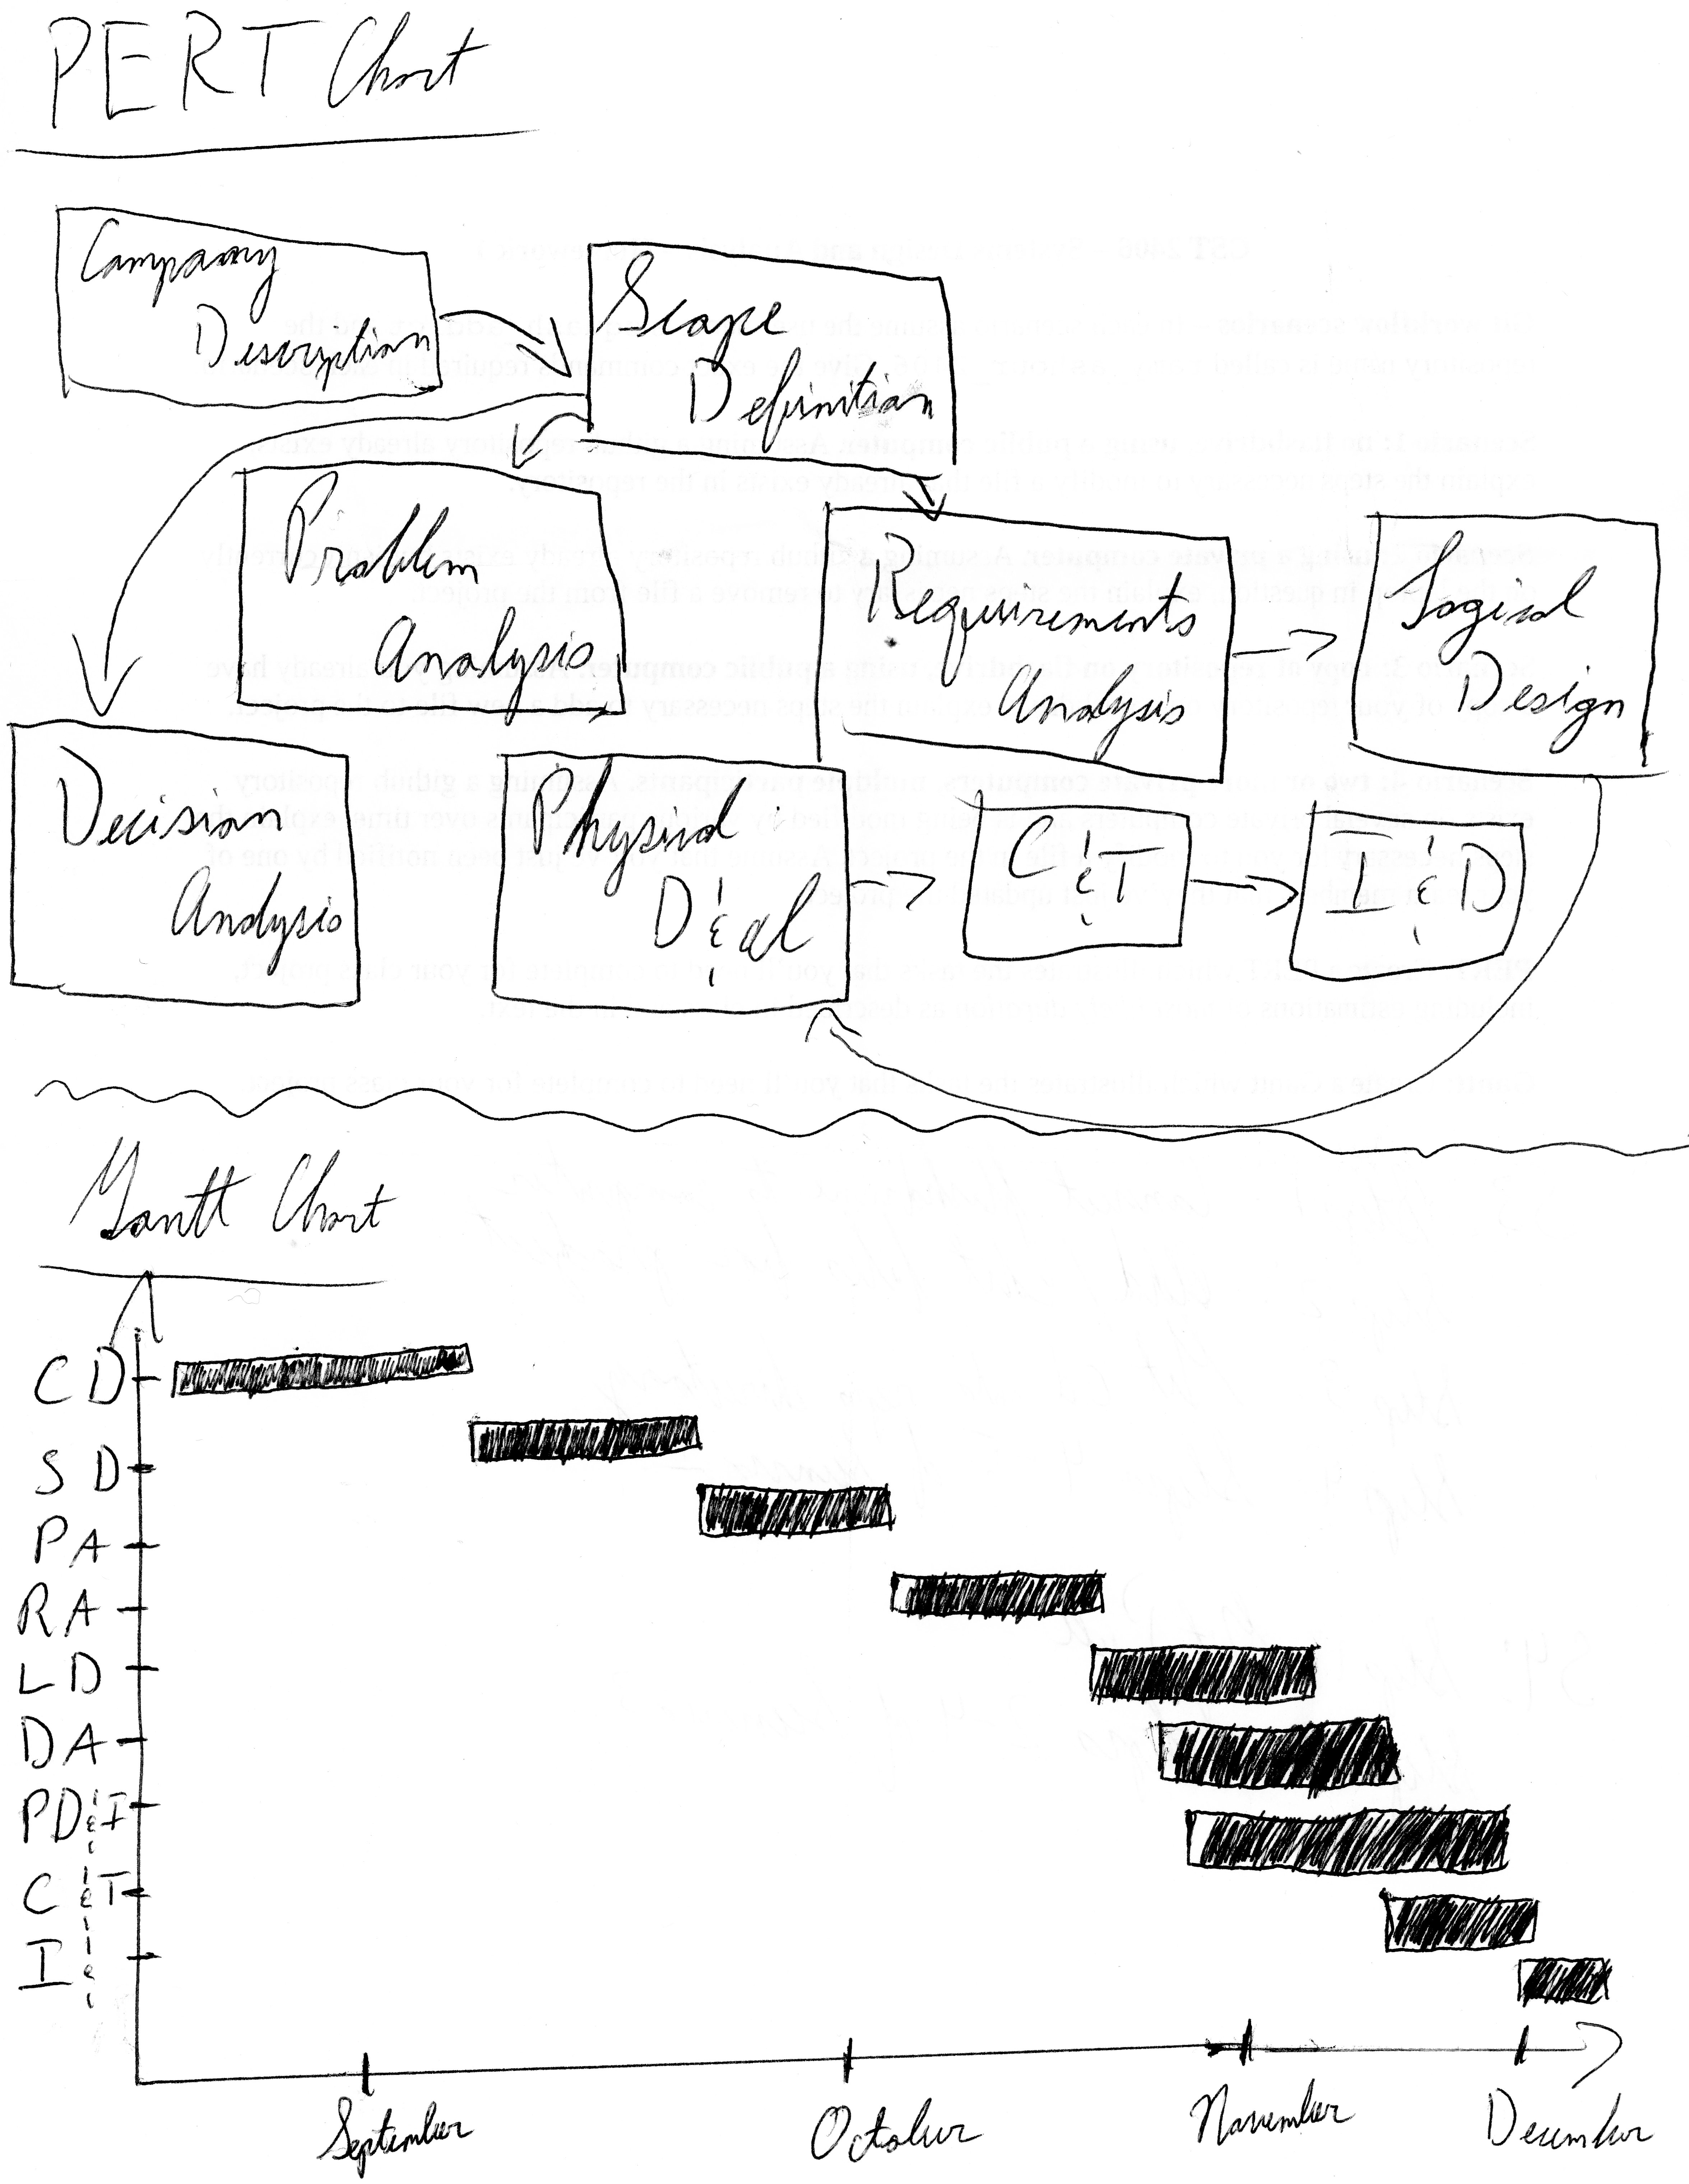 PERT Chart
Company
Description
Scope
Definition
Problem
Analysis
Requirements
Analysis
Logical
Design
Decision
Analysis
Physical
D &
C & T
I & D
Gantt Chart
CD
SD
PA
RA
LD
DA
PD & I
C & T
I &
September
October
November
December